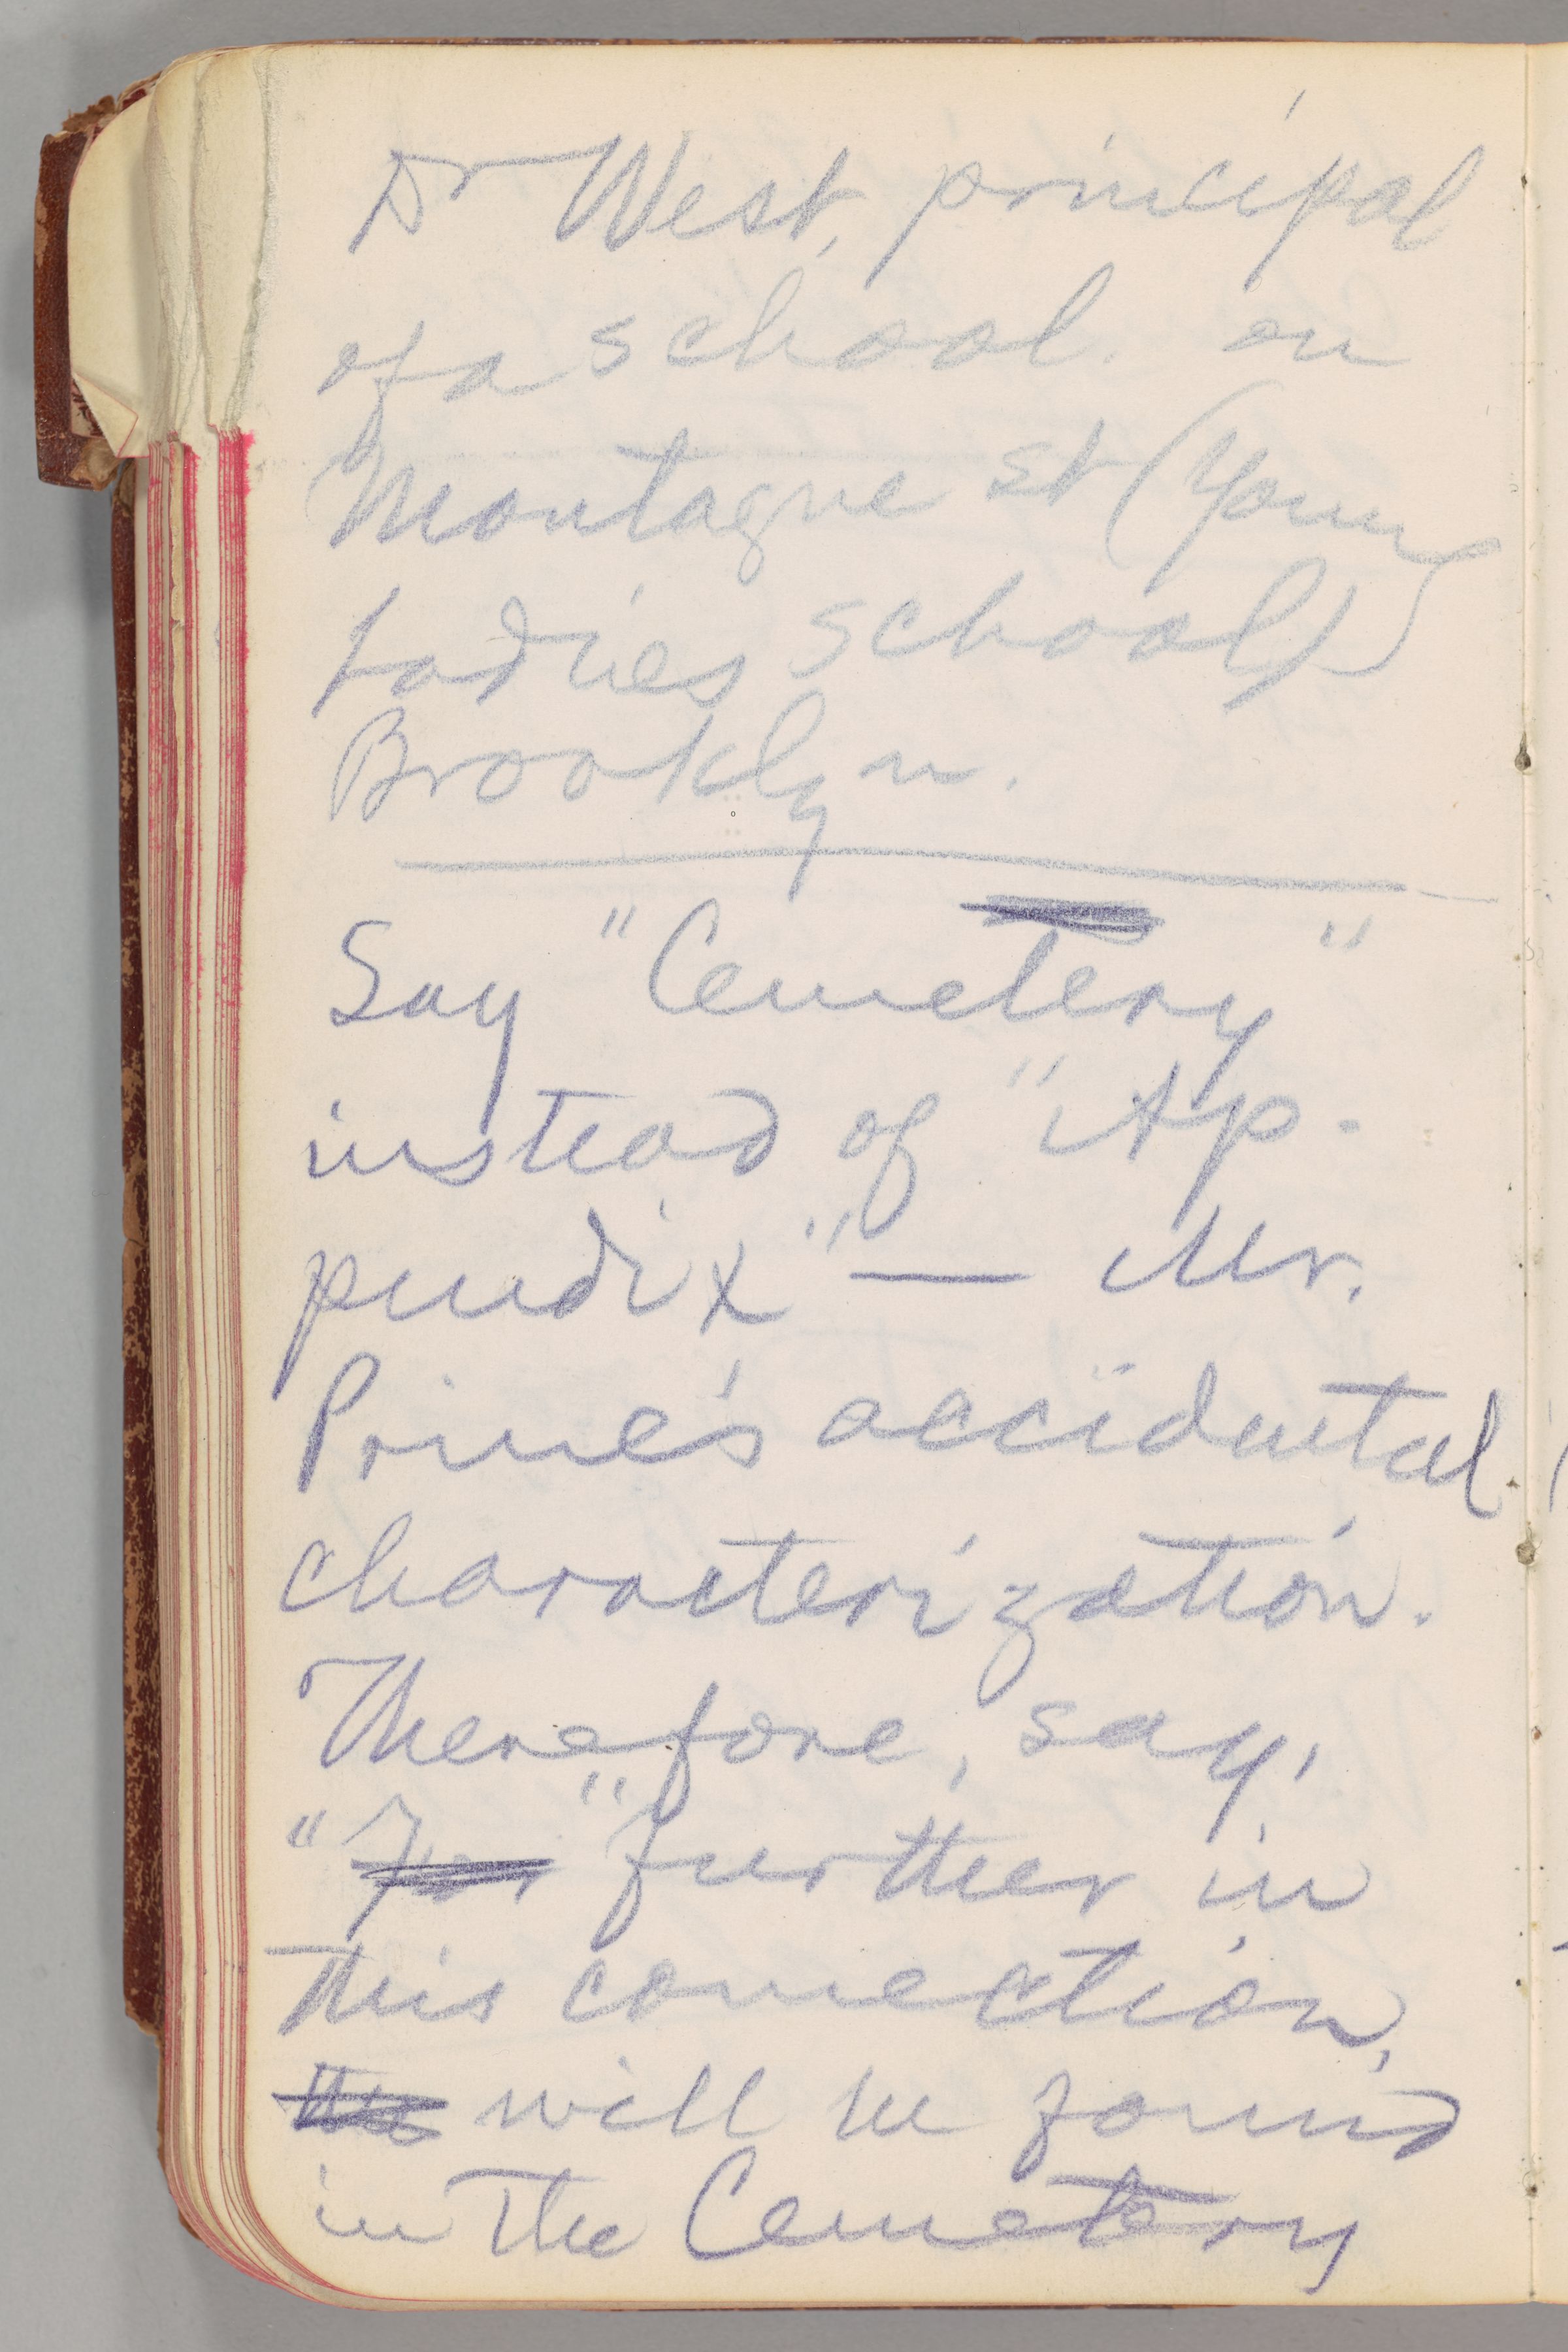 Dr West, principal
of a school. on
Montague st (Young
Ladies School)
Brooklyn.
Say "Cemetery"
instead of "Ap-
pendix" — Mr.
Prime's accidental
characterization.
Therefore, say,
"For" further in
this connection,
the will be found
in the Cemetery